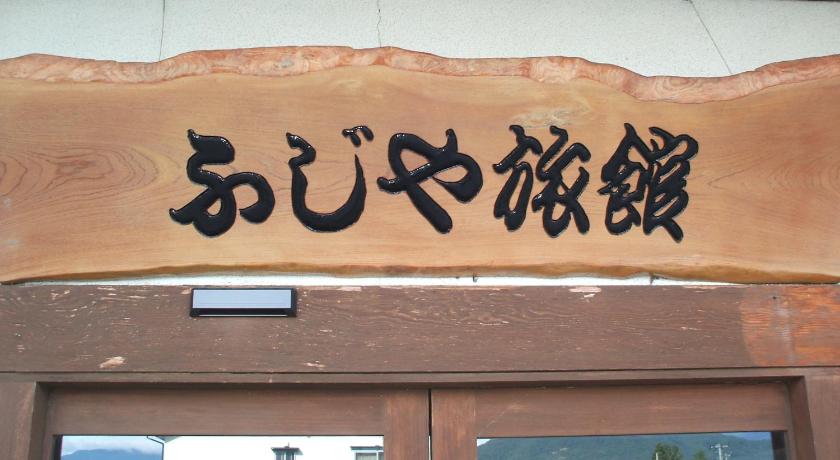 ふじや旅館